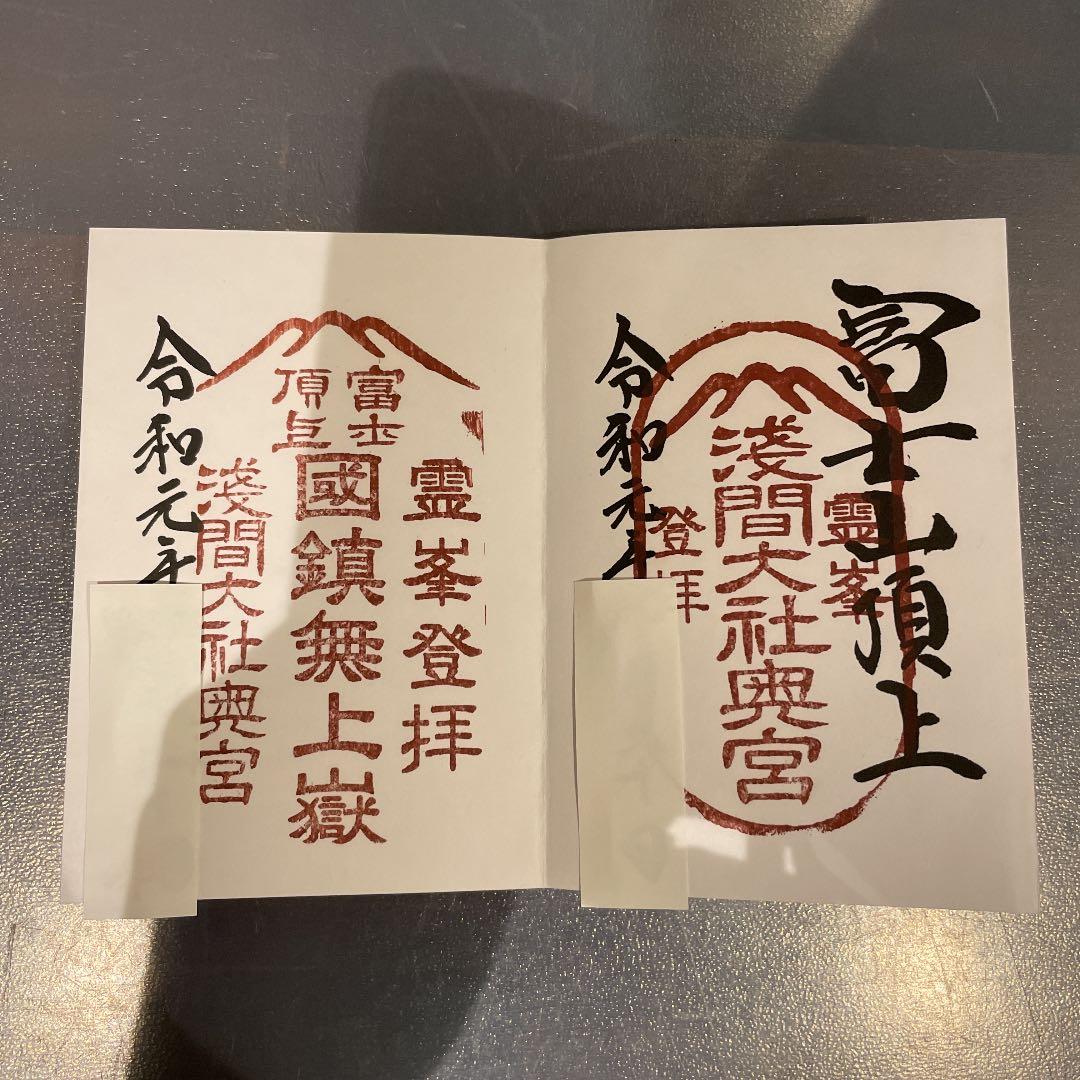 富士山頂上
霊峯
淺間大社奥宮
登拝
令和元年
霊峯登拝
富士
頂上
國鎮無上嶽
淺間大社奥宮
令和元年